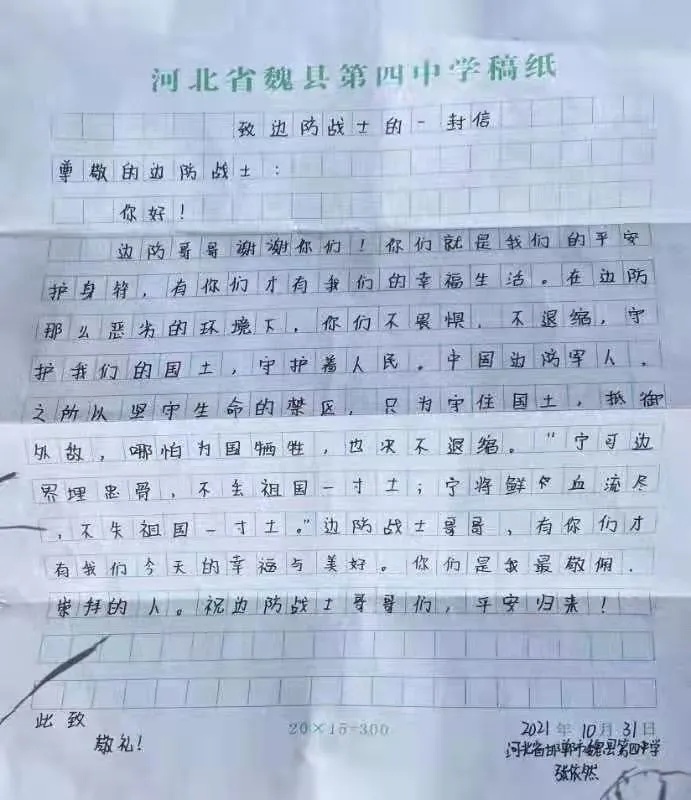 河北省魏县第四中学稿纸
致边防战士的一封信
尊敬的边防战士：
你好！
边防哥哥谢谢你们！你们就是我们的平安
护身符，有你们才有我们的幸福生活。在边防
那么恶劣的环境下，你们不畏惧，不退缩，守
护我们的国土，守护着人民。中国边防军人，
之所以坚守生命的禁区，只为守住国土，抵御
外敌，哪怕为国牺牲，也决不退缩。“宁可边
界埋忠骨，不丢祖国一寸土；宁将鲜血流尽
，不失祖国一寸土。”边防战士哥哥，有你们才
有我们今天的幸福与美好。你们是我最敬佣.
崇拜的人。祝边防战士哥哥们，平安归来！
此致
敬礼！
20×15=300
2021年10月31日
河北省邯郸市魏县第四中学
张依然